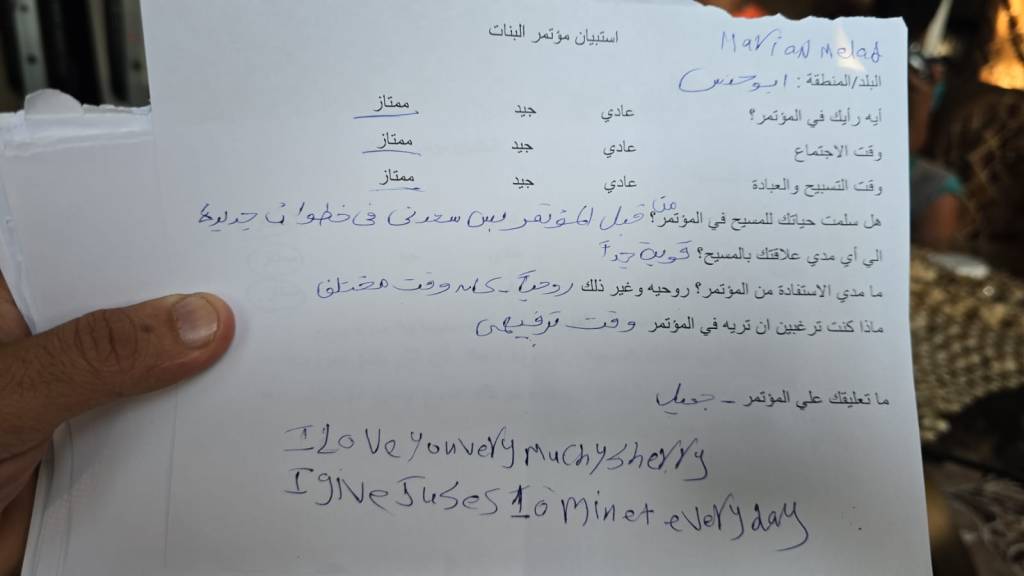 استبيان مؤتمر البنات
Marian melad
البلد/المنطقة : ابو حنس
أيه رأيك في المؤتمر؟ عادي جيد ممتاز
وقت الاجتماع عادي جيد ممتاز
وقت التسبيح والعبادة عادي جيد ممتاز
هل سلمت حياتك للمسيح في المؤتمر؟ قبل المؤتمر بس سعدنى فى خطوات جديدة
الي أي مدي علاقتك بالمسيح؟ قوية جداً
ما مدي الاستفادة من المؤتمر؟ روحيه وغير ذلك روحياً - كان وقت مختلف
ماذا كنت ترغبين ان تريه في المؤتمر وقت ترفيهى
ما تعليقك علي المؤتمر - جميل
I Love you very much
I give Juses 10 minet every day